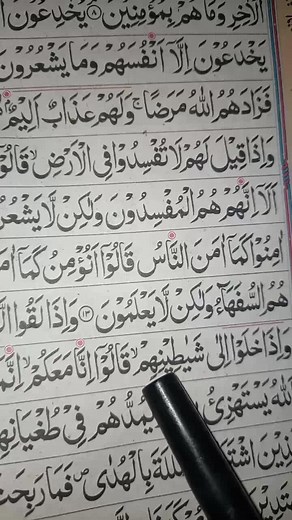 الْاٰخِرِ وَمَا هُمْ بِمُؤْمِنِيْنَ ۝٨ يُخٰدِعُوْنَ
يَخْدَعُوْنَ اِلَّاۤ اَنْفُسَهُمْ وَمَا يَشْعُرُوْنَ
فَزَادَهُمُ اللّٰهُ مَرَضًا ۚ وَلَهُمْ عَذَابٌ اَلِيْمٌ
وَاِذَا قِيْلَ لَهُمْ لَا تُفْسِدُوْا فِى الْاَرْضِ ۙ قَالُوْۤا
اَلَاۤ اِنَّهُمْ هُمُ الْمُفْسِدُوْنَ وَلٰكِنْ لَّا يَشْعُرُ
اٰمِنُوْا كَمَاۤ اٰمَنَ النَّاسُ قَالُوْۤا اَنُؤْمِنُ كَمَاۤ اٰمَ
هُمُ السُّفَهَآءُ وَلٰكِنْ لَّا يَعْلَمُوْنَ ۝١٣ وَاِذَا لَقُوا
وَاِذَا خَلَوْا اِلٰى شَيٰطِيْنِهِمْ ۙ قَالُوْۤا اِنَّا مَعَكُمْ ۙ اِنَّمَ
اَللّٰهُ يَسْتَهْزِئُ يَمُدُّهُمْ فِىْ طُغْيَانِهِ
بِالْهُدٰى ۪ فَمَا رَبِحَتْ